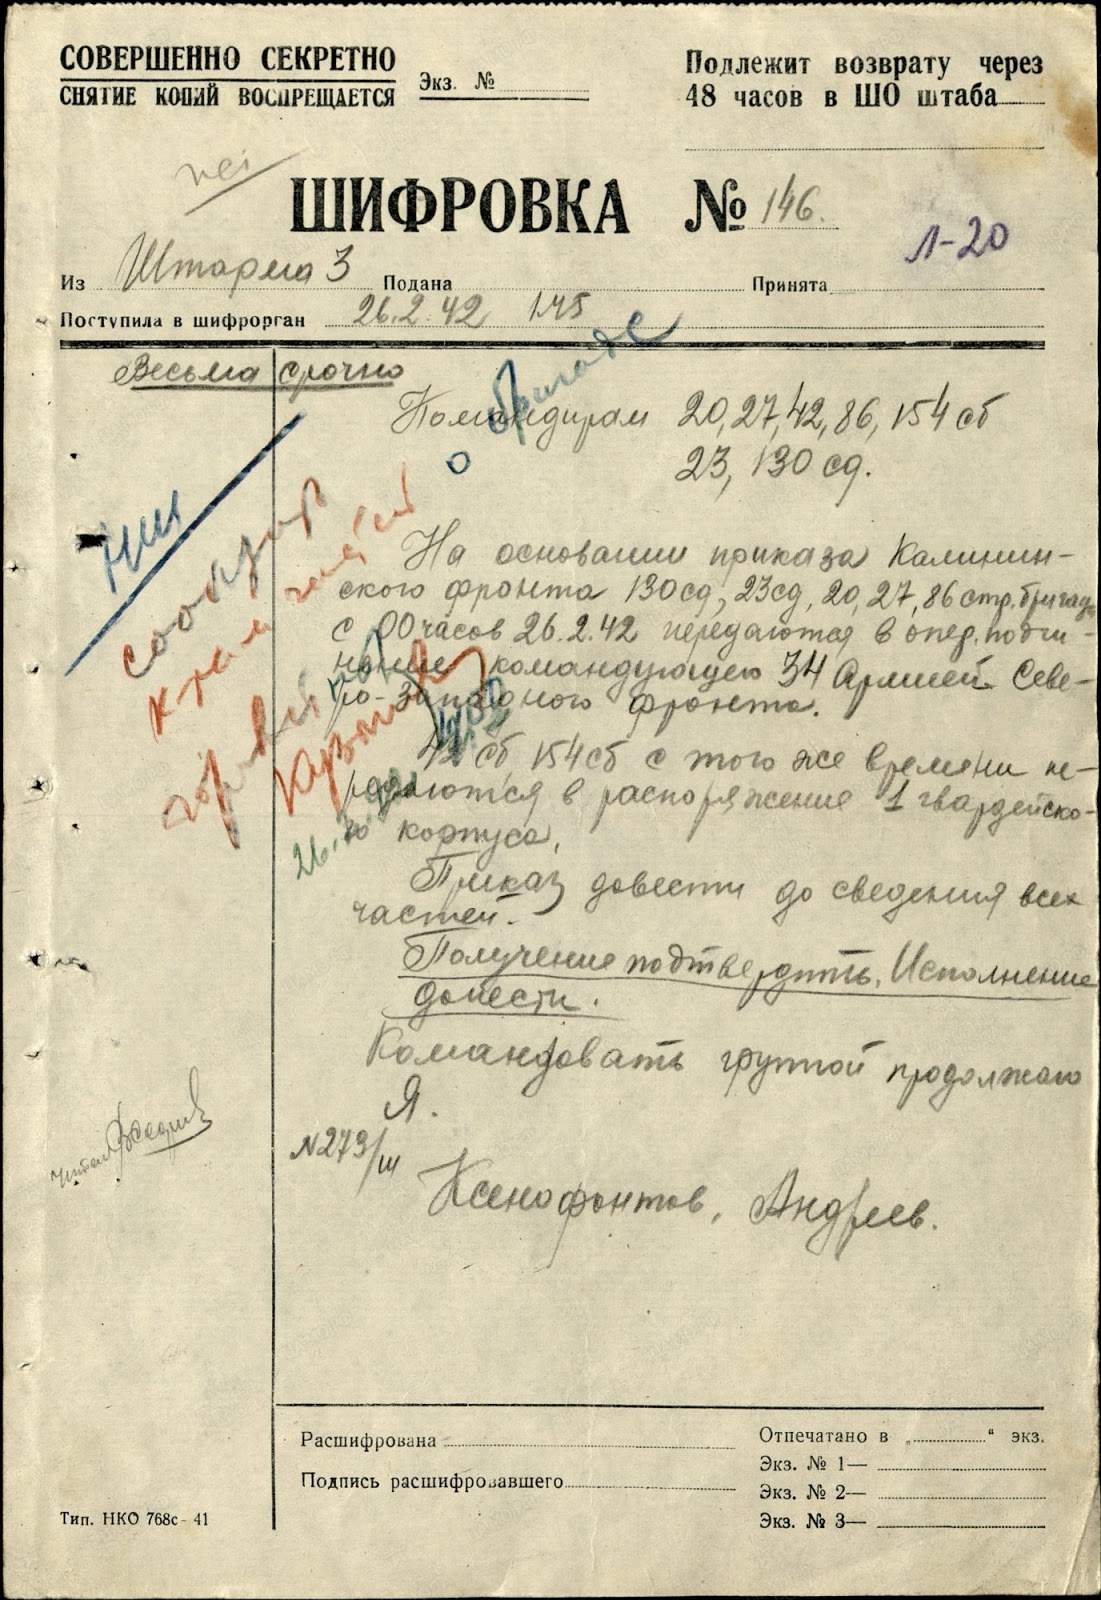 СОВЕРШЕННО СЕКРЕТНО
СНЯТИЕ КОПИЙ ВОСПРЕЩАЕТСЯ
Экз. №
Подлежит возврату через
48 часов в ШО штаба
ШИФРОВКА № 146.
Л-20
Из Штарма 3 Подана Принята
Поступила в шифрорган 26.2.42 1.45
Весьма срочно
Командирам 20, 27, 42, 86, 154 сб
23, 130 сд.
НШ
о бригаде
На основании приказа Калинин-
ского фронта 130 сд, 23 сд, 20, 27, 86 стр. бригады
с 00 часов 26.2.42 передаются в опер. подчи-
нение командующего 34 Армией Севе-
ро-Западного фронта.
42 сб, 154 сб с того же времени пе-
редаются в распоряжение 1 гвардейско-
го корпуса,
Приказ довести до сведения всех
частей.
Получение подтвердить, Исполнение
донести.
Командовать группой продолжаю
Я.
№273/ш
Ксенофонтов, Андреев.
читал
Расшифрована
Подпись расшифровавшего
Отпечатано в „ “ экз.
Экз. № 1—
Экз. № 2—
Экз. № 3—
Тип. НКО 768с-41